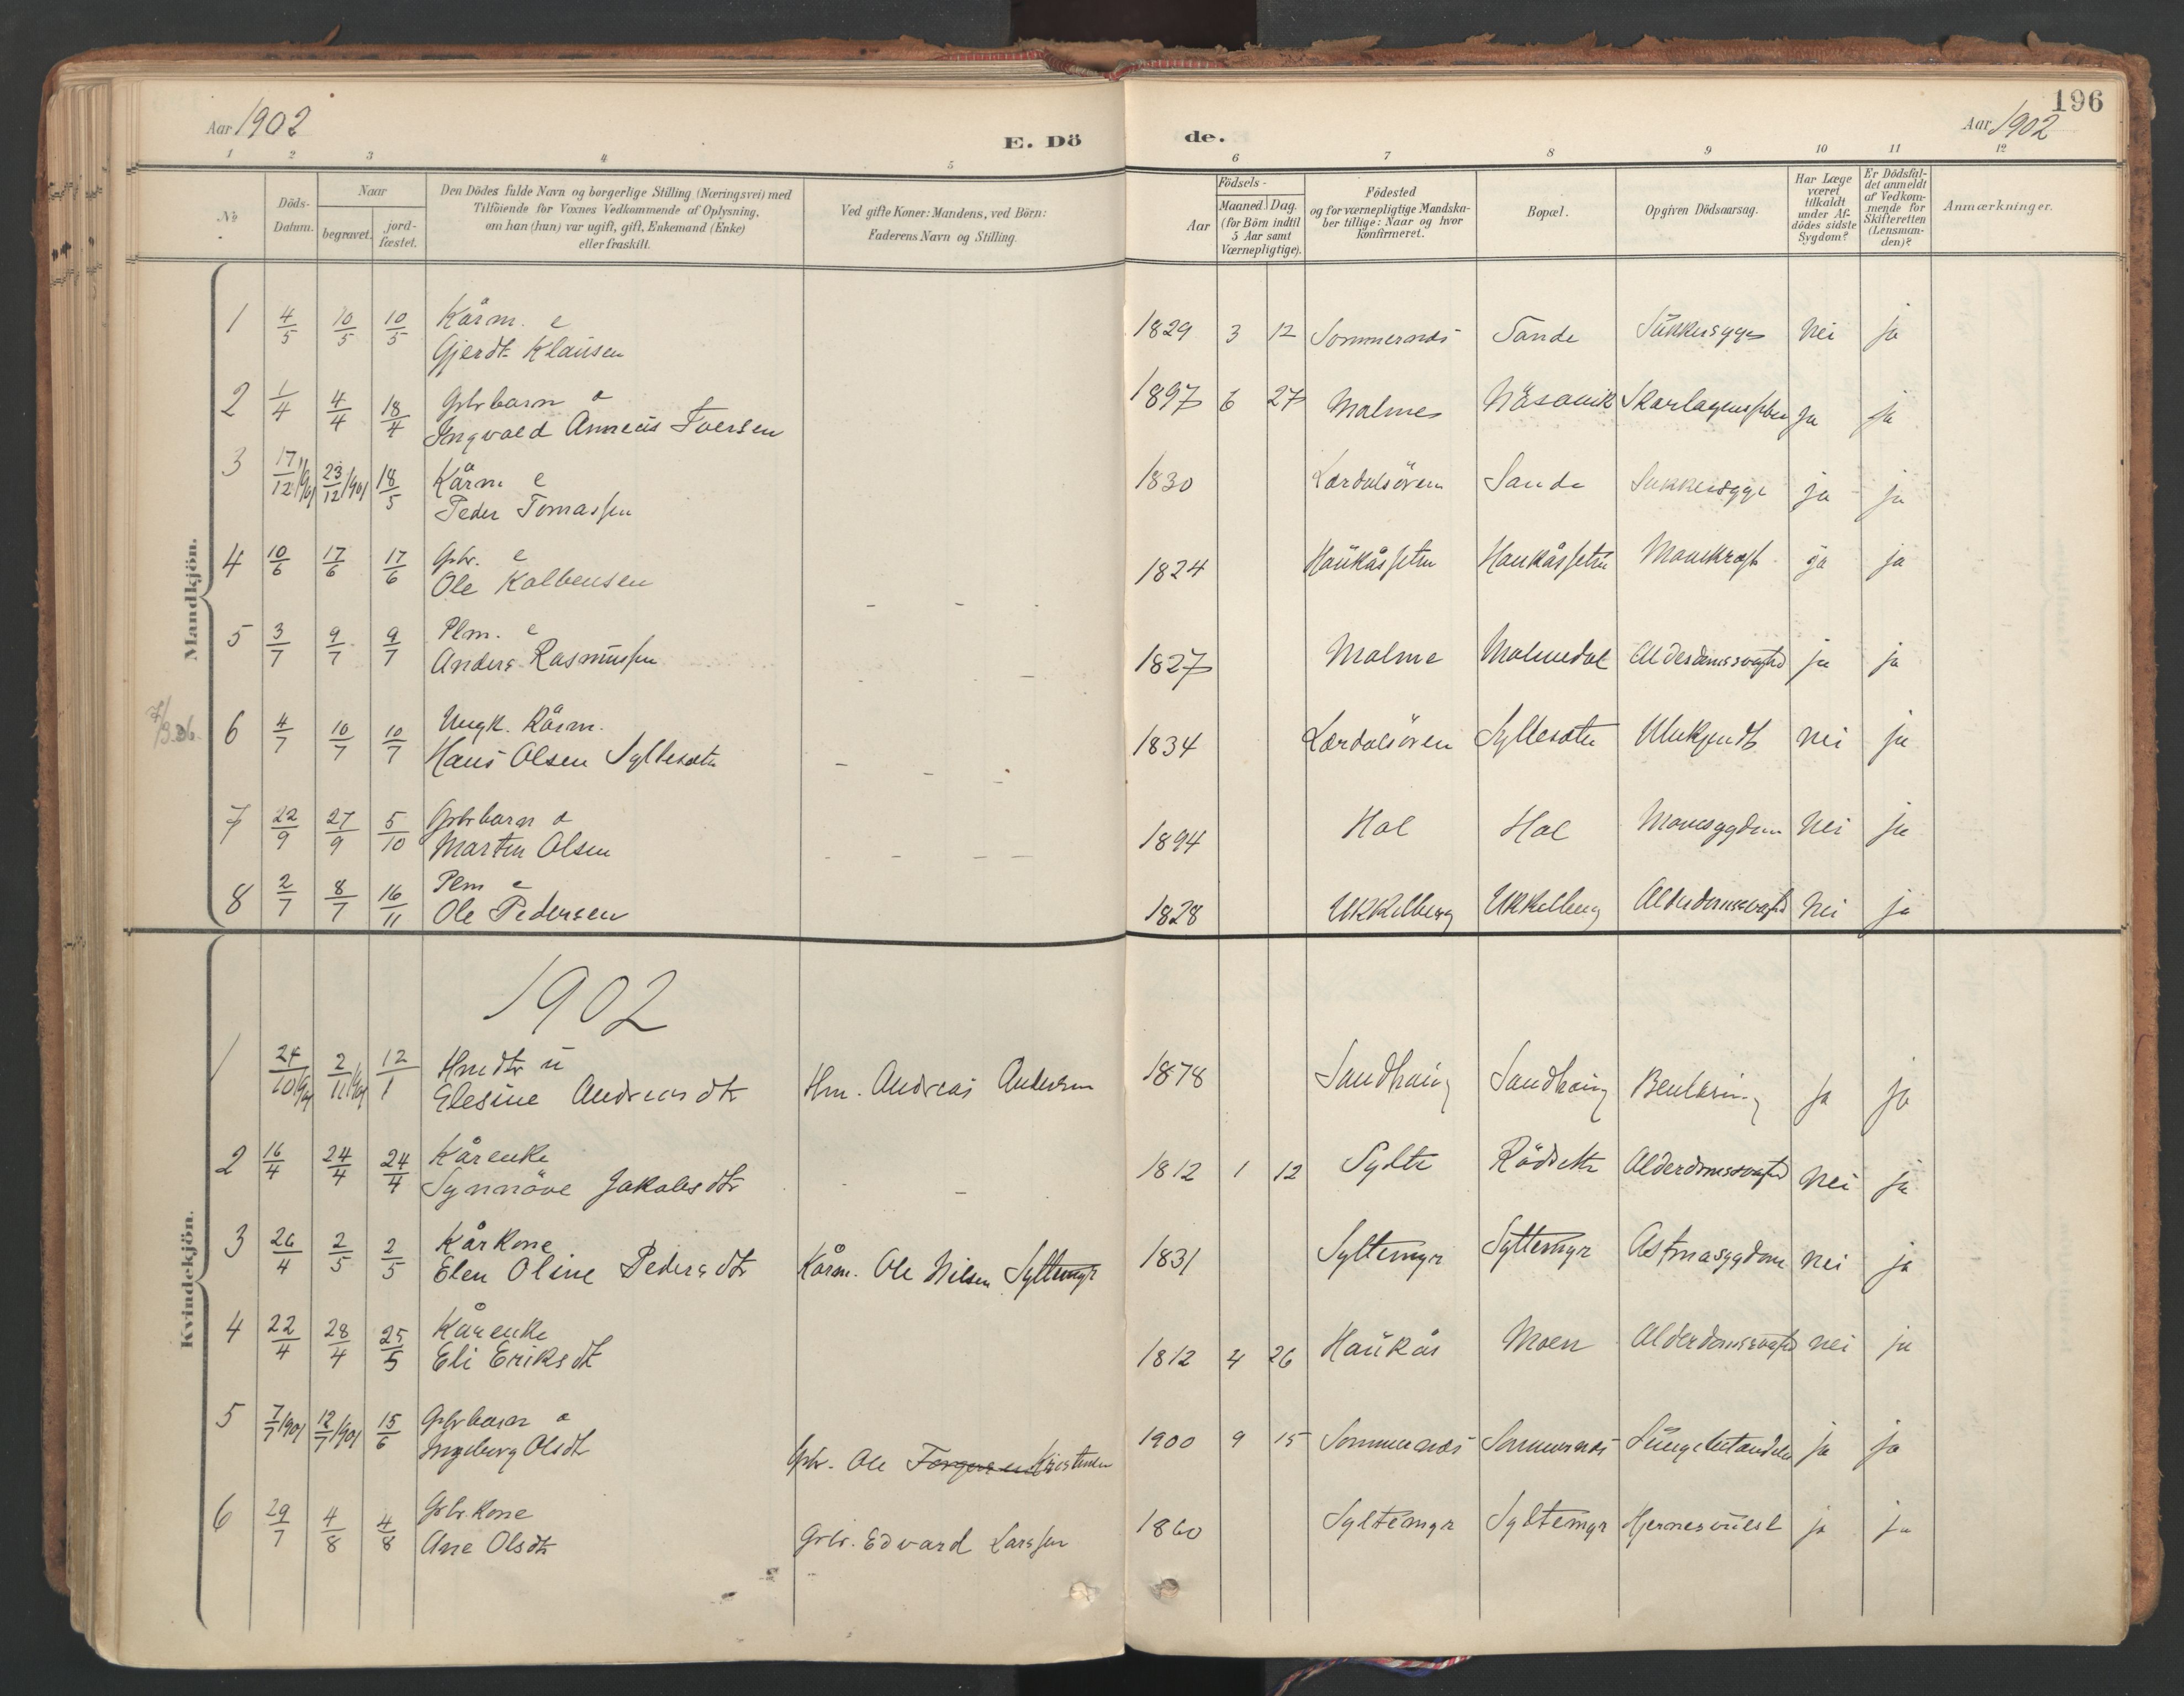 196
Aar 1902
E. Dö de.
Aar 1902
1 2 3 4 5 6 7 8 9 10 11 12
No
Döds-Datum.
Naar
begravet.
jord-fæstet.
Den Dödes fulde Navn og borgerlige Stilling (Næringsvei) med
Tilföiende for Voxnes Vedkommende af Oplysning,
om han (hun) var ugift, gift, Enkemand (Enke)
eller fraskilt.
Ved gifte Koner: Mandens, ved Börn:
Faderens Navn og Stilling.
Födsels-
Aar
Maaned. Dag.
(for Börn indtil
5 Aar samt
Værnepligtige).
Födested
og for værnepligtige Mandska-
ber tillige: Naar og hvor
konfirmeret.
Bopæl.
Opgiven Dödsaarsag.
Har Læge
været
tilkaldt
under Af-
dödes sidste
Sygdom?
Er Dödsfal-
det anmeldt
af Vedkom-
mende for
Skifteretten
(Lensman-
den)?
Anmærkninger.
Mandkjön.
1 4/5 10/5 10/5 Kårm. e
Gjerdt Klausen 1829 3 12 Sommernes Sande Sukkersyge Nei ja
2 1/4 4/4 18/4 Gbrbarn
Ingvald Anneus Iversen 1897 6 27 Malmes Näsavik Skarlagensfeber Ja ja
3 17/12 1901 23/12 1901 18/5 Kårm e
Peder Tomassen 1830 Lærdalsören Sande Sukkersyge ja ja
4 10/6 17/6 17/6 Gbr. e
Ole Kolbensen 1824 Haukåssetra Haukåssetra Mavekræft ja ja
5 3/7 9/7 9/7 Plm. e
Anders Rasmussen 1827 Malme Malmedal Alderdomssvaghed ja ja
6 4/7 10/7 10/7 Ungk. Kårm.
Hans Olsen Syltesæter 1834 Lærdalsören Syltesæter Ubekjendt Nei ja
7 22/9 27/9 5/10 Gbrbarn
Martin Olsen 1894 Hol Hol Mavesygdom Nei ja
8 2/7 8/7 16/11 Plm e
Ole Pedersen 1828 Ukkelberg Ukkelberg Alderdomssvaghed Nei ja
1902
Kvindekjön.
1 24/10 1901 2/11 1901 12/1 Hmdtr u
Elesine Andreasdtr Hm. Andreas Andersen 1878 Sandhaug Sandhaug ja ja
2 16/4 24/4 24/4 Kårenke
Synnöve Jakobsdtr 1812 1 12 Sylte Rödsetr Alderdomssvaghed Nei ja
3 26/4 2/5 2/5 Kårkone
Elen Oline Pedersdtr Kårm. Ole Nilsen Syltemyr 1831 Syltemyr Syltemyr Astmasygdom Nei ja
4 22/4 28/4 25/5 Kårenke
Eli Eriksdt 1812 4 26 Haukås Moen Alderdomssvaghed Nei ja
5 7/7 1901 12/7 1901 15/6 Gbrbarn
Ingeborg Olsdt Gbr. Ole Torgersen Kristensen 1900 9 15 Sommernes Sommernes Lungebetændelse ja ja
6 29/7 4/8 4/8 Gbrkone
Ane Olsdtr Gbr. Edvard Larssen 1860 Syltemyr Syltemyr Hjernesvulst ja ja